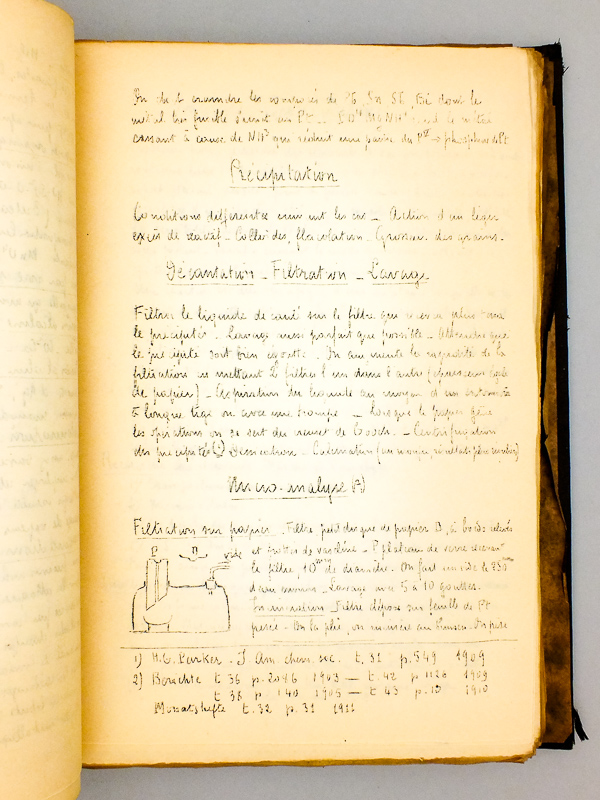 On doit craindre les composés de Pb, Sn, Sb, Bi dont le
métal très fusible s'unit au Pt
cassant à cause de NH³ que réduit une partie du → phosphure de Pt
Précipitation
Conditions différentes suivant les cas _ Action d'un léger
excès de réactif _ Colloïdes, floculation _ Grosseur des grains _
Décantation _ Filtration _ Lavage
Filtrer le liquide décanté sur le filtre que recevra plus tard
le précipité. Lavage aussi parfait que possible _ Attendre que
le précipité soit bien égoutté. On augmente la rapidité de la
filtration en mettant 2 filtres l'un dans l'autre
de papier) _ Aspiration du liquide au moyen d'un entonnoir
à longue tige ou avec une trompe _ Lorsque le papier gêne
les opérations on se sert du creuset de Gooch. _ Centrifugation
des précipités (1) Dessication _ Calcination
Micro-analyse (2)
Filtration sur papier. Filtre, petit disque de papier à bords
P vide et frottés de vaseline _ P plateau de verre
le filtre, 10 mm de diamètre. On fait un vide de
d'eau environ _ Lavage avec 5 à 10 gouttes.
Incinération _ Filtre déposé sur feuille de Pt
pesée _ On la plie, on incinère au
1) H.G. Parker _ J. Am. chem. soc. t. 31 p. 549 1909
2) t. 36 p. 1903 _ t. 42 p. 1126 1909
t. 38 p. 140 1905 _ t. 43 p. 10 1910
Monatshefte t. 32 p. 31 1911